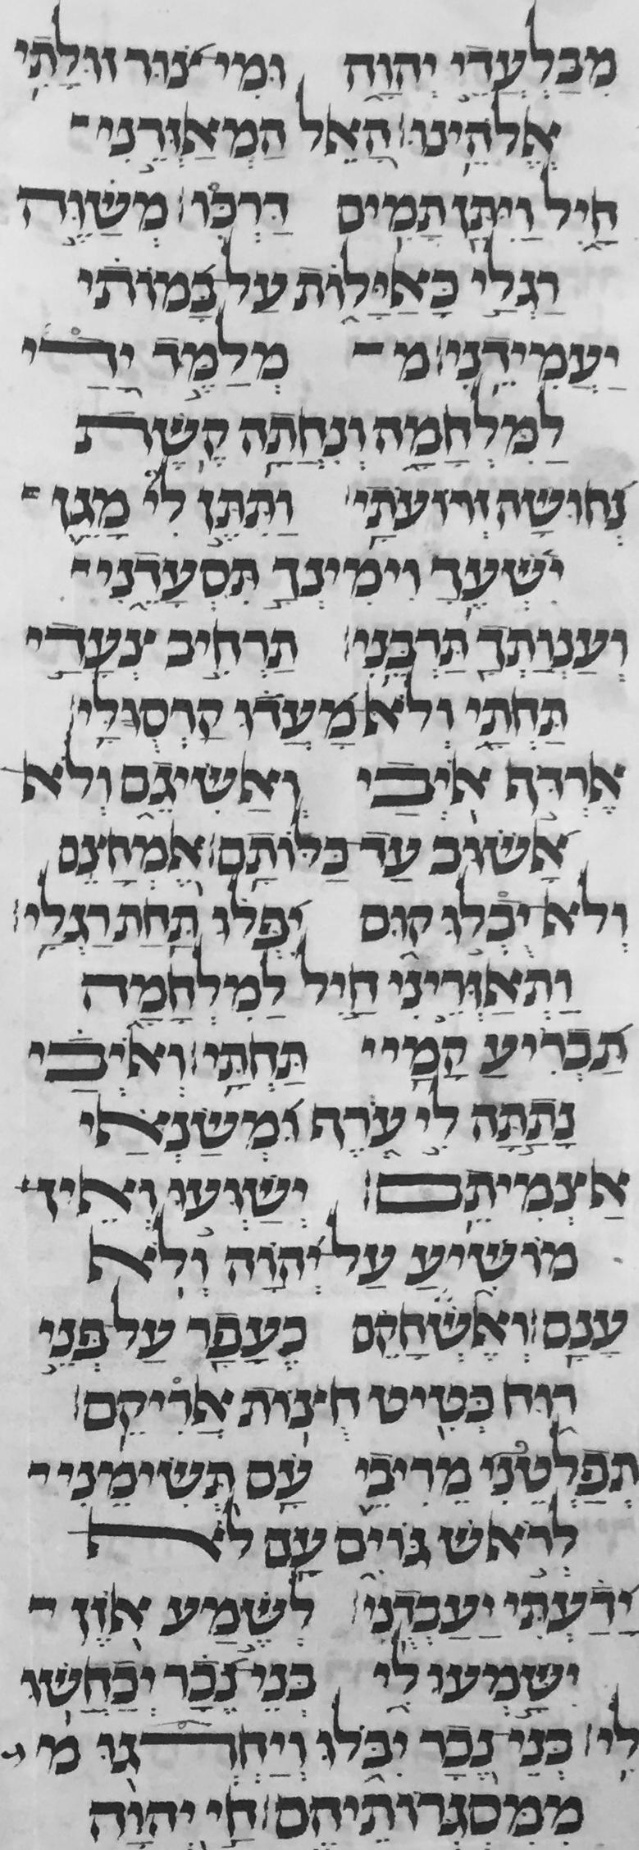 מִבַּלְעֲדֵי יְהוָה וּמִי צוּר זוּלָתִי
אֱלֹהֵינוּ׃ הָאֵל הַמְאַזְּרֵנִי
חָיִל וַיִּתֵּן תָּמִים דַּרְכִּי׃ מְשַׁוֶּה
רַגְלַי כָּאַיָּלוֹת עַל בָּמוֹתַי
יַעֲמִידֵנִי׃ מ מְלַמֵּד יָדַי
לַמִּלְחָמָה וְנִחֲתָה קֶשֶׁת
נְחוּשָׁה זְרוֹעֹתָי׃ וַתִּתֶּן לִי מָגֵן
יִשְׁעֶךָ וִימִינְךָ תִסְעָדֵנִי
וְעַנְוַתְךָ תַרְבֵּנִי׃ תַּרְחִיב צְעָדַי
תַּחְתָּי וְלֹא מָעֲדוּ קַרְסֻלָּי׃
אֶרְדֹּף אֹיְבַי וְאַשִּׂיגֵם וְלֹא
אָשׁוּב עַד כַּלּוֹתָם׃ אֶמְחָצֵם
וְלֹא יֻכְלוּ קוּם יִפְּלוּ תַּחַת רַגְלָי׃
וַתְּאַזְּרֵינִי חַיִל לַמִּלְחָמָה
תַּכְרִיעַ קָמַי תַּחְתָּי׃ וְאֹיְבַי
נָתַתָּה לִּי עֹרֶף וּמְשַׂנְאַי
אַצְמִיתֵם׃ יְשַׁוְּעוּ וְאֵין
מוֹשִׁיעַ עַל יְהוָה וְלֹא
עָנָם׃ וְאֶשְׁחָקֵם כְּעָפָר עַל פְּנֵי
רוּחַ כְּטִיט חוּצוֹת אֲרִיקֵם׃
תְּפַלְּטֵנִי מֵרִיבֵי עָם תְּשִׂימֵנִי
לְרֹאשׁ גּוֹיִם עַם לֹא
יָדַעְתִּי יַעַבְדֻנִי׃ לְשֵׁמַע אֹזֶן
יִשָּׁמְעוּ לִי בְּנֵי נֵכָר יְכַחֲשׁוּ
לִי׃ בְּנֵי נֵכָר יִבֹּלוּ וְיַחְרְגוּ מ
מִמִּסְגְּרוֹתֵיהֶם׃ חַי יְהוָה